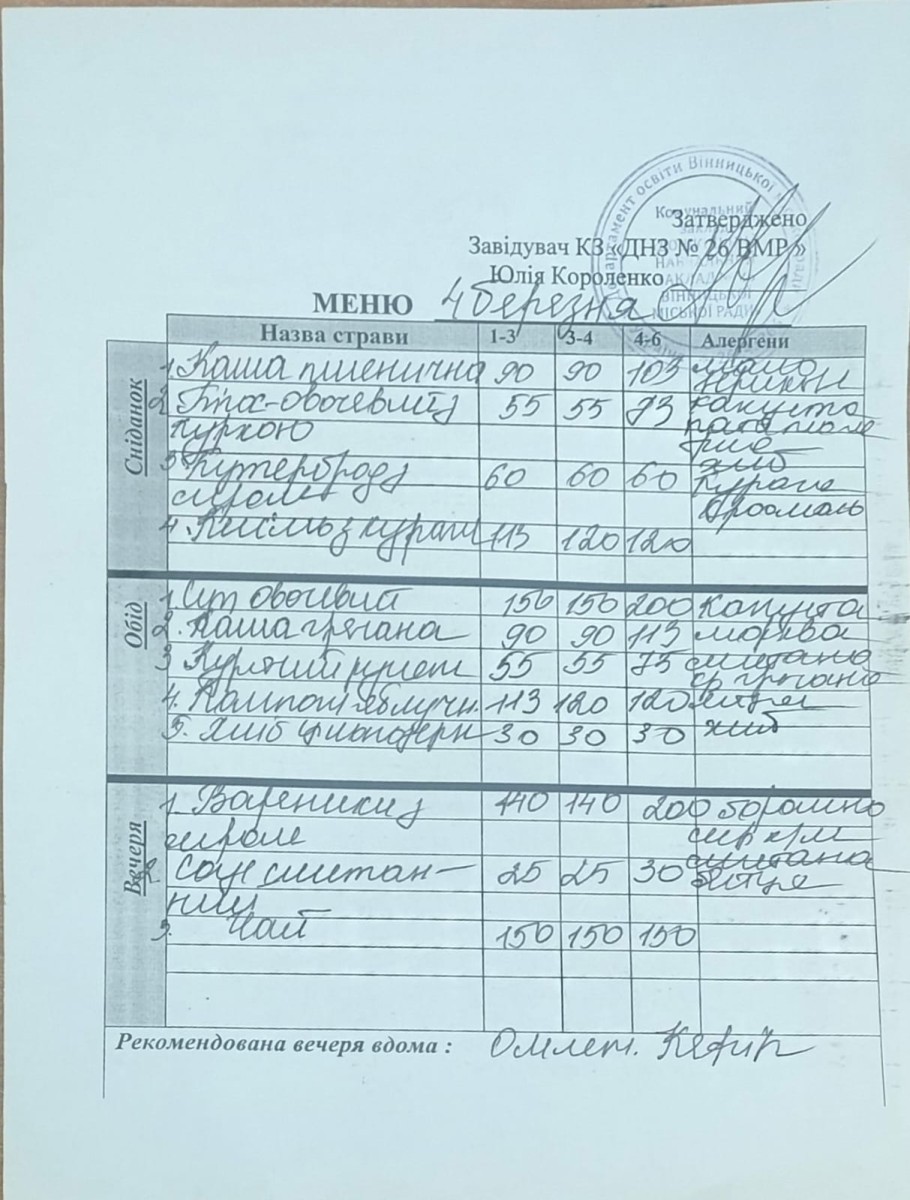 Департамент освіти Вінницької
Комунальний
заклад
Затверджено
Завідувач КЗ «ДНЗ № 26 ВМР »
Юлія Короленко
ВІННИЦЬКОЇ
МІСЬКОЇ РАДИ
МЕНЮ 4 березня
Назва страви 1-3 3-4 4-6 Алергени
Сніданок
1. Каша пшенична 90 90 103
2. овочевий з 55 55 73 капуста
куркою
хліб
3. Бутерброд з 60 60 60 курага
сиром крохмаль
4. Кисіль з кураги 113 120 120
Обід
1. Суп овочевий 150 150 200 капуста
2. Каша гречана 90 90 113 морква
3. Курячий рулет 55 55 75 сметана
4. Компот яблучн. 113 120 120 яйця
5. Хліб цільнозерн 30 30 30 хліб
Вечеря
1. Вареники з 140 140 200 борошно
сиром сир к/м
сметана
2. Соус сметан- 25 25 30 яйця
ний
3. Чай 150 150 150
Рекомендована вечеря вдома : Омлет. Кефір